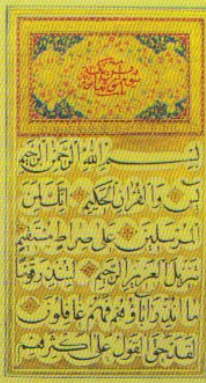 بسم الله الرحمن الرحيم
يس والقران الحكيم انك لمن
المرسلين على صراط مستقيم
تنزيل العزيز الرحيم لتنذر قوما
ما انذر اباؤهم فهم غافلون
لقد حق القول على اكثرهم